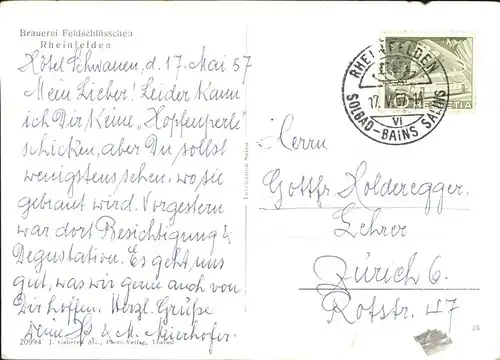 Brauerei Feldschlösschen
Rheinfelden
Hôtel Schwanen, d. 17. Mai 57
Mein Lieber! Leider kann
ich Dir keine „Hopfenperle"
schicken, aber Du sollst
wenigstens sehen, wo sie
gebraut wird. Vorgestern
war dort Besichtigung &
Degustation. Es geht uns
gut, was wir gerne auch von
Dir hoffen. Herzl. Grüße
Deine & M. Meierhofer.
20994
RHEINFELDEN
17. V. 57 - 11
VI
SOLBAD - BAINS SALINS
HELVETIA
Herrn
Gottfr. Holderegger.
Lehrer
Zürich 6.
Rotstr. 47